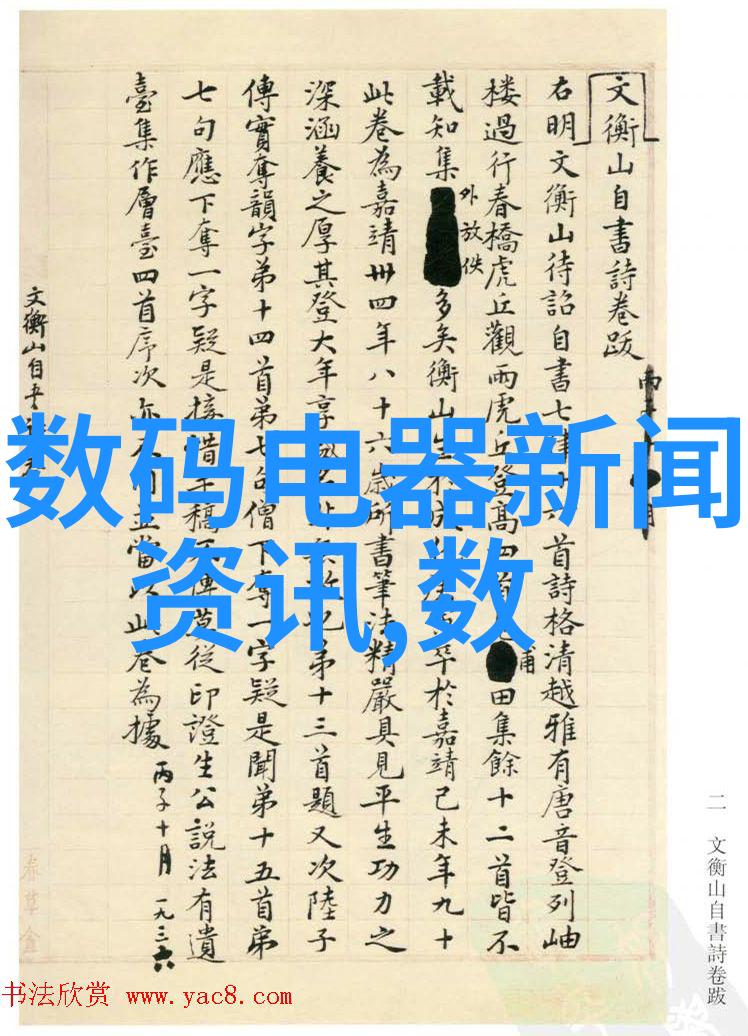 文衡山自書詩卷跋
右明文衡山待詔自書七律十六首詩格清越雅有唐音登列岫
楼過行春橋虎丘觀雨虎丘登高四首
甫
田集餘十二首皆不
載知集
外放佚
多矣衡山生
卒於嘉靖己未年九十
此卷為嘉靖卅四年八十六歲所書筆法精嚴具見平生功力之
深涵養之厚其登大年享
弟十三首題又次陸子
傳實奪韻字弟十四首弟七句僧下奪一字疑是聞弟十五首弟
七句應下奪一字疑是接
從印證生公說法有遺
臺集作層臺四首序次亦
當以此卷為據
丙子十月 一九三六
文衡山自書
数码电器新闻
资讯,数
二 文衡山自書詩卷跋
书法欣赏 www.yac8.com